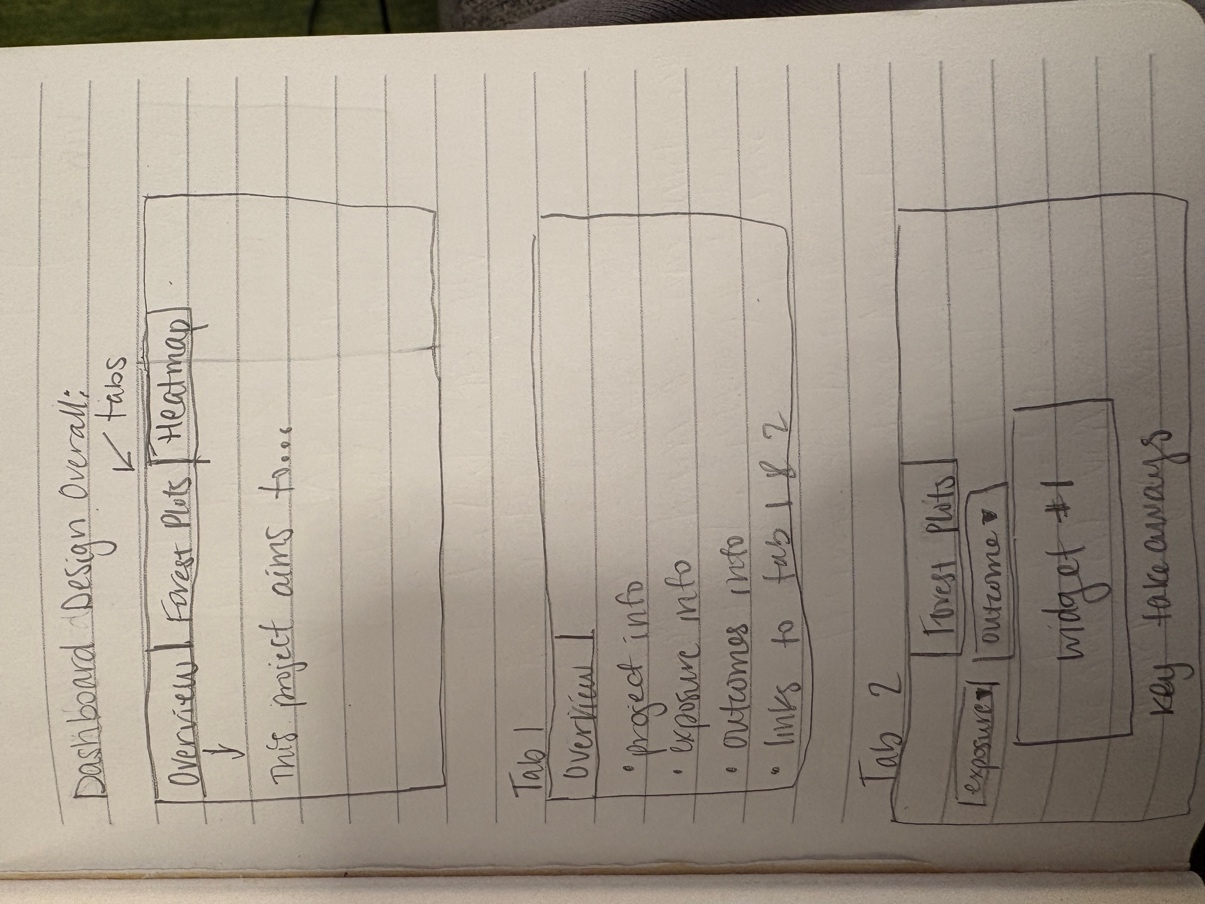 Dashboard Design Overall:
tabs
Overview Forest Plots Heatmap
This project aims to...
Tab 1
Overview
• project info
• exposure info
• outcomes info
• links to tab 1 & 2
Tab 2
Forest Plots
exposure▾ outcome▾
widget #1
key takeaways